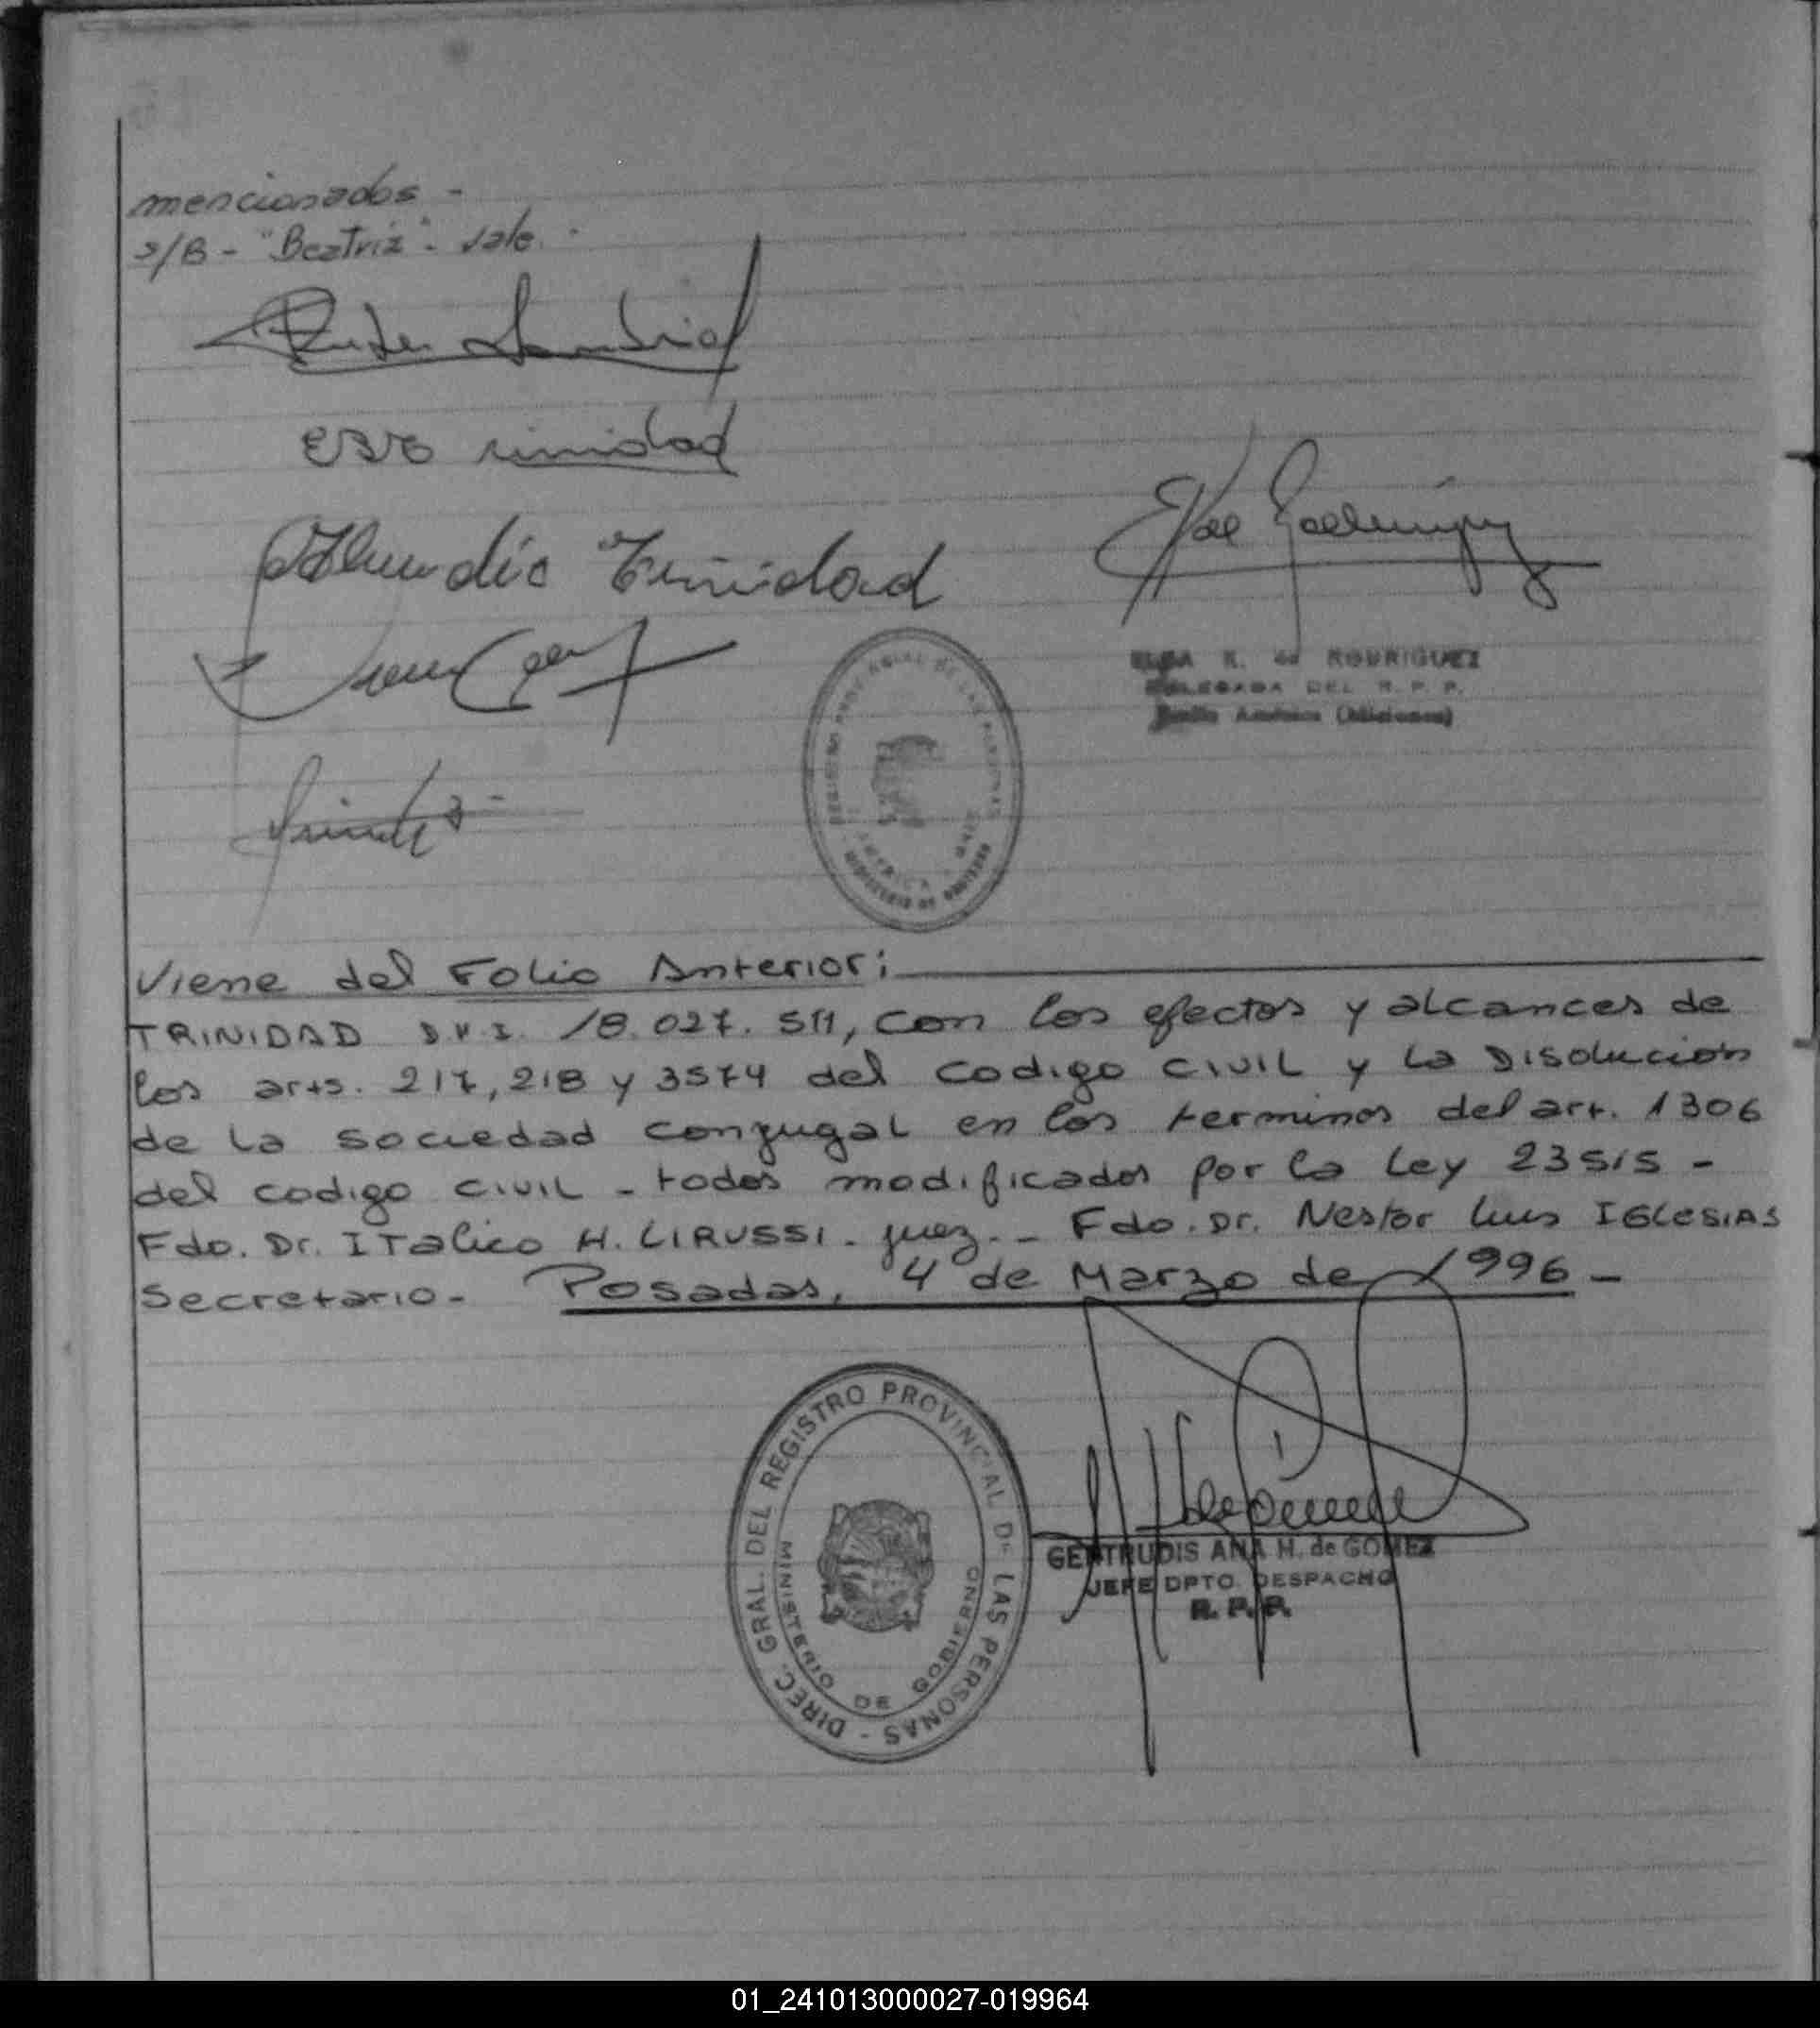 mencionados -
s/B - "Beatriz" - vale. -
Trinidad
Trinidad
ELSA R. de RODRIGUEZ
DELEGADA DEL R. P. P.
(Misiones)
Viene del Folio Anterior:
TRINIDAD D.N.I. 18.027.511, con los efectos y alcances de
los arts. 217, 218 y 3574 del codigo civil y la Disolución
de la sociedad conyugal en los terminos del art. 1306
del codigo civil - todos modificados por la Ley 23515 -
Fdo. Dr. ITalico H. LIRUSSI - juez. - Fdo. Dr. Nestor Luis IGLESIAS
Secretario - Posadas, 4 de Marzo de 1996 -
DIREC. GRAL. DEL REGISTRO PROVINCIAL DE LAS PERSONAS -
MINISTERIO DE GOBIERNO
GERTRUDIS ANA H. de GOMEZ
JEFE DPTO. DESPACHO
R. P. P.
01_241013000027-019964